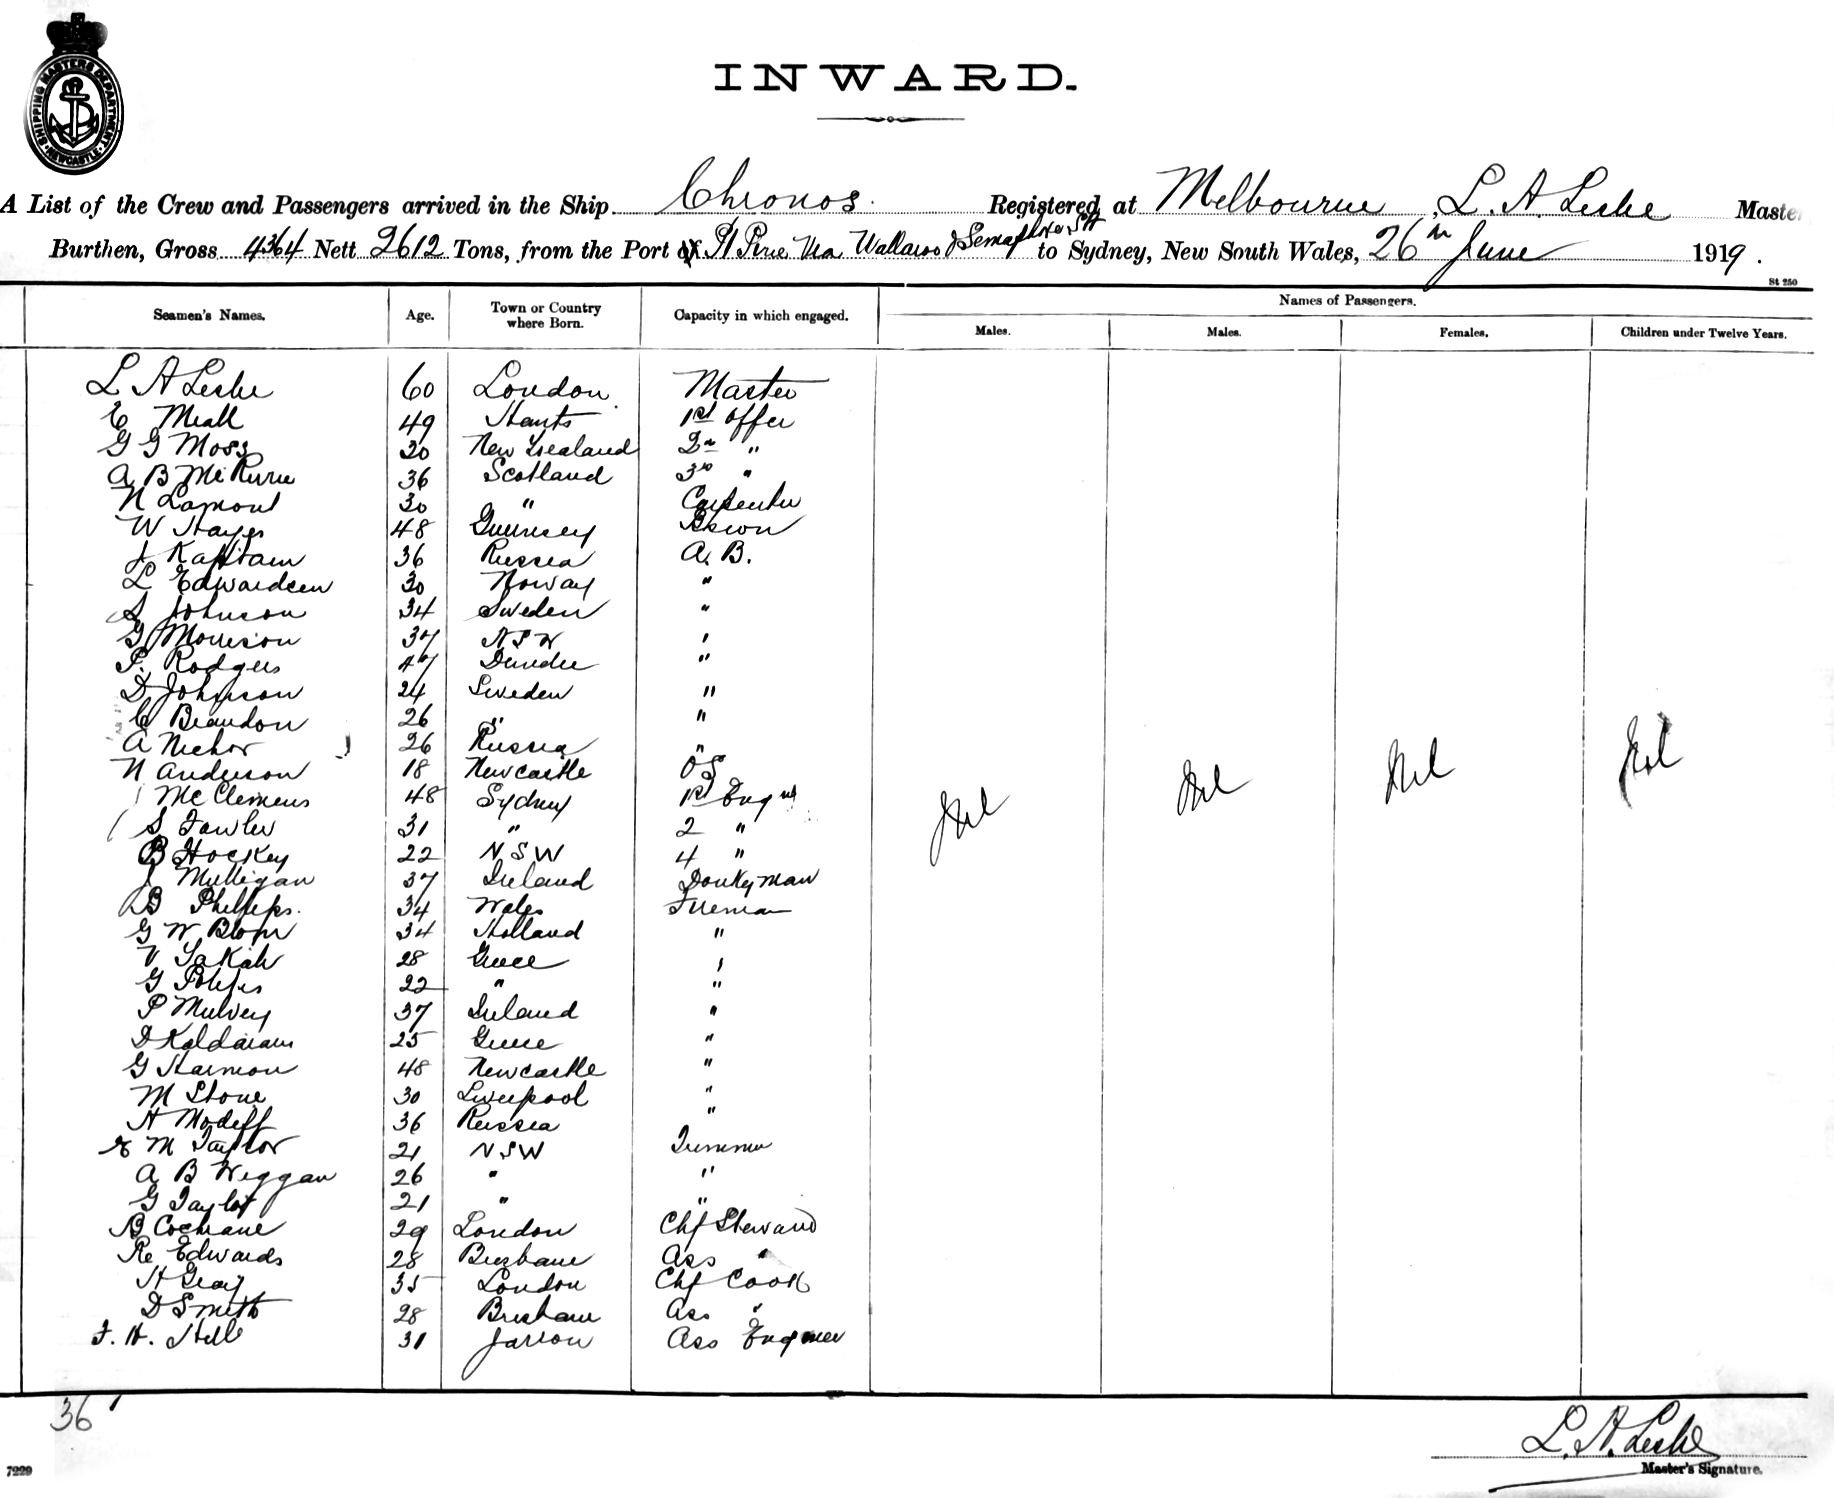 SHIPPING MASTERS DEPARTMENT
NEWCASTLE
INWARD.
A List of the Crew and Passengers arrived in the Ship Chronos. Registered at Melbourne, L. A. Leske Master
Burthen, Gross 4364 Nett 2612 Tons, from the Port of Pt Pirie Via Wallaroo & Semaphore SA to Sydney, New South Wales, 26th June 1919.
St 250
Seamen's Names. Age. Town or Country where Born. Capacity in which engaged. Names of Passengers.
Males. Males. Females. Children under Twelve Years.
L A Leske 60 London Master
E Meall 49 Hants 1st Offer
G G Moss 30 New Zealand 2n "
A B McRurie 36 Scotland 3rd "
N Lamont 30 " Carpenter
W Hayes 48 Guernsey Bsown
J Kaptam 36 Russia A. B.
L Edwardsen 30 Norway "
S Johnson 34 Sweden "
G Morrison 37 NSW "
P. Rodgers 47 Dundee "
D Johnson 24 Sweden "
C Brandon 26 " "
A Nichor 26 Russia "
N Anderson 18 Newcastle OS
McClemens 48 Sydney 1st Engnr
S Fowler 31 " 2 "
B Hockey 22 NSW 4 "
J Mulligan 37 Ireland Donkeyman
B Phillips. 34 Wales Fireman
G W Blom 34 Holland "
V 28 Greece "
G 22 " "
P Mulvey 37 Ireland "
D Kaldaram 25 Greece "
G Harmon 48 Newcastle "
M Stone 30 Liverpool "
H Modeff 36 Russia "
M Taylor 21 NSW Trimmer
A B Wiggan 26 " "
G Taylor 21 " "
B Cochrane 29 London Chf Steward
Re Edwards 28 Brisbane Ass "
H Gray 35 London Chf Cook
D Smith 28 Brisbane Ass "
F. H. Hill 31 Jarrow Ass Engineer
Nil Nil Nil Nil
36
L. A. Leske
Master's Signature.
7229